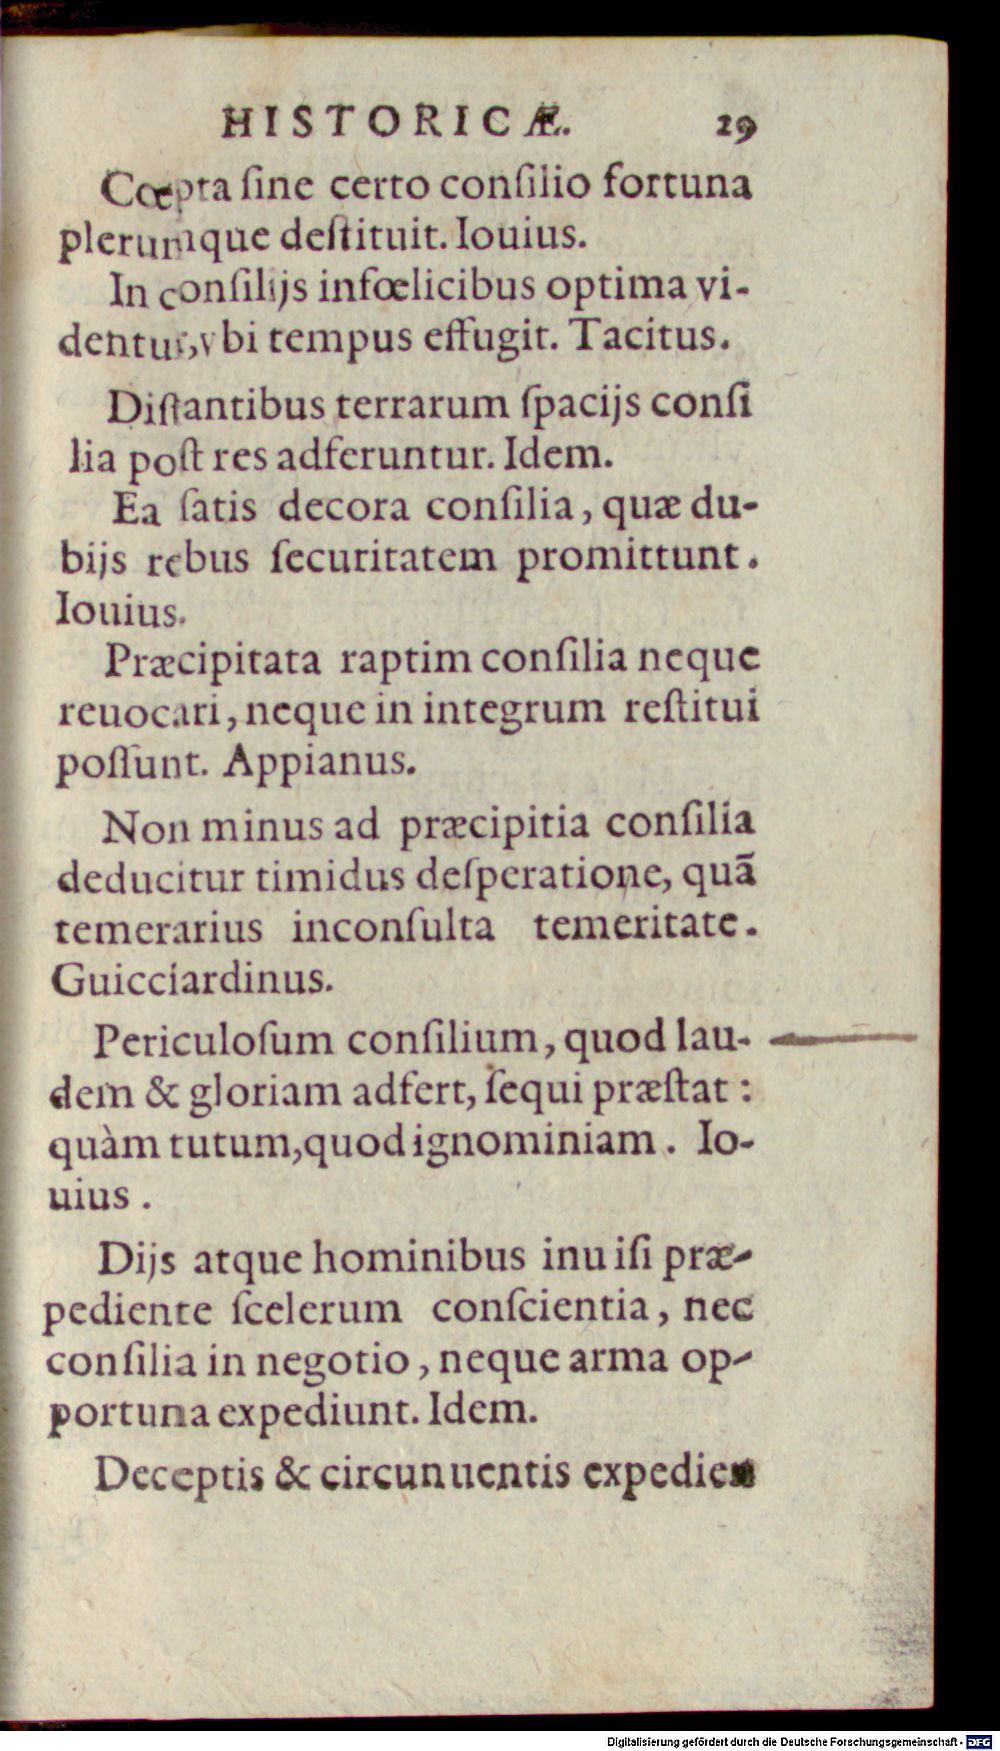 HISTORICÆ. 29
Cœpta ſine certo conſilio fortuna
plerumque deſtituit. Iouius.
In conſilijs infœlicibus optima vi-
dentur, vbi tempus effugit. Tacitus.
Diſtantibus terrarum ſpacijs conſi
lia poſt res adferuntur. Idem.
Ea ſatis decora conſilia, quæ du-
bijs rebus ſecuritatem promittunt.
Iouius.
Præcipitata raptim conſilia neque
reuocari, neque in integrum reſtitui
poſſunt. Appianus.
Non minus ad præcipitia conſilia
deducitur timidus deſperatione, quã
temerarius inconſulta temeritate.
Guicciardinus.
Periculoſum conſilium, quod lau-
dem & gloriam adfert, ſequi præſtat:
quàm tutum, quod ignominiam. Io-
uius.
Dijs atque hominibus inuiſi præ-
pediente ſcelerum conſcientia, nec
conſilia in negotio, neque arma op-
portuna expediunt. Idem.
Deceptis & circunuentis
Digitalisierung gefördert durch die Deutsche Forschungsgemeinschaft - DFG